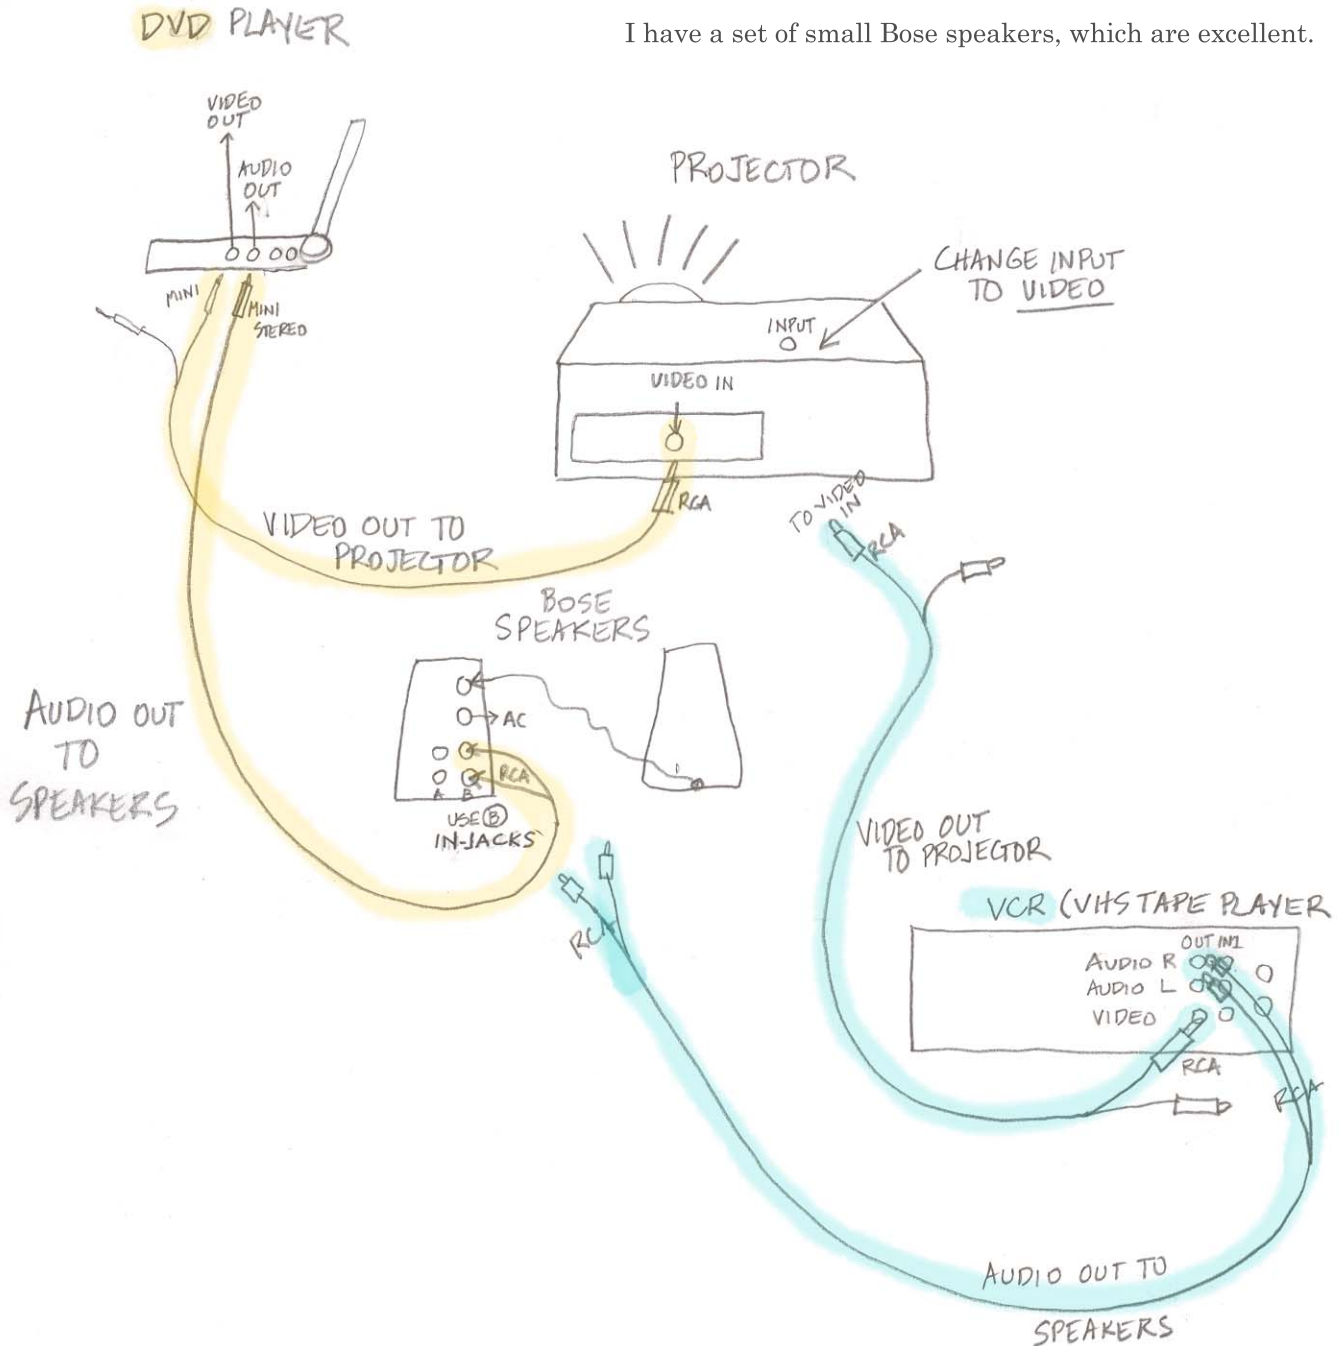 DVD PLAYER
I have a set of small Bose speakers, which are excellent.
VIDEO
OUT
AUDIO
OUT
MINI
MINI
STEREO
PROJECTOR
CHANGE INPUT
TO VIDEO
INPUT
VIDEO IN
RCA
TO VIDEO
IN
RCA
VIDEO OUT TO
PROJECTOR
BOSE
SPEAKERS
AC
RCA
A B
USE B
IN-JACKS
AUDIO OUT
TO
SPEAKERS
RCA
VIDEO OUT
TO PROJECTOR
VCR (VHS TAPE PLAYER
OUT IN1
AUDIO R
AUDIO L
VIDEO
RCA
RCA
AUDIO OUT TO
SPEAKERS